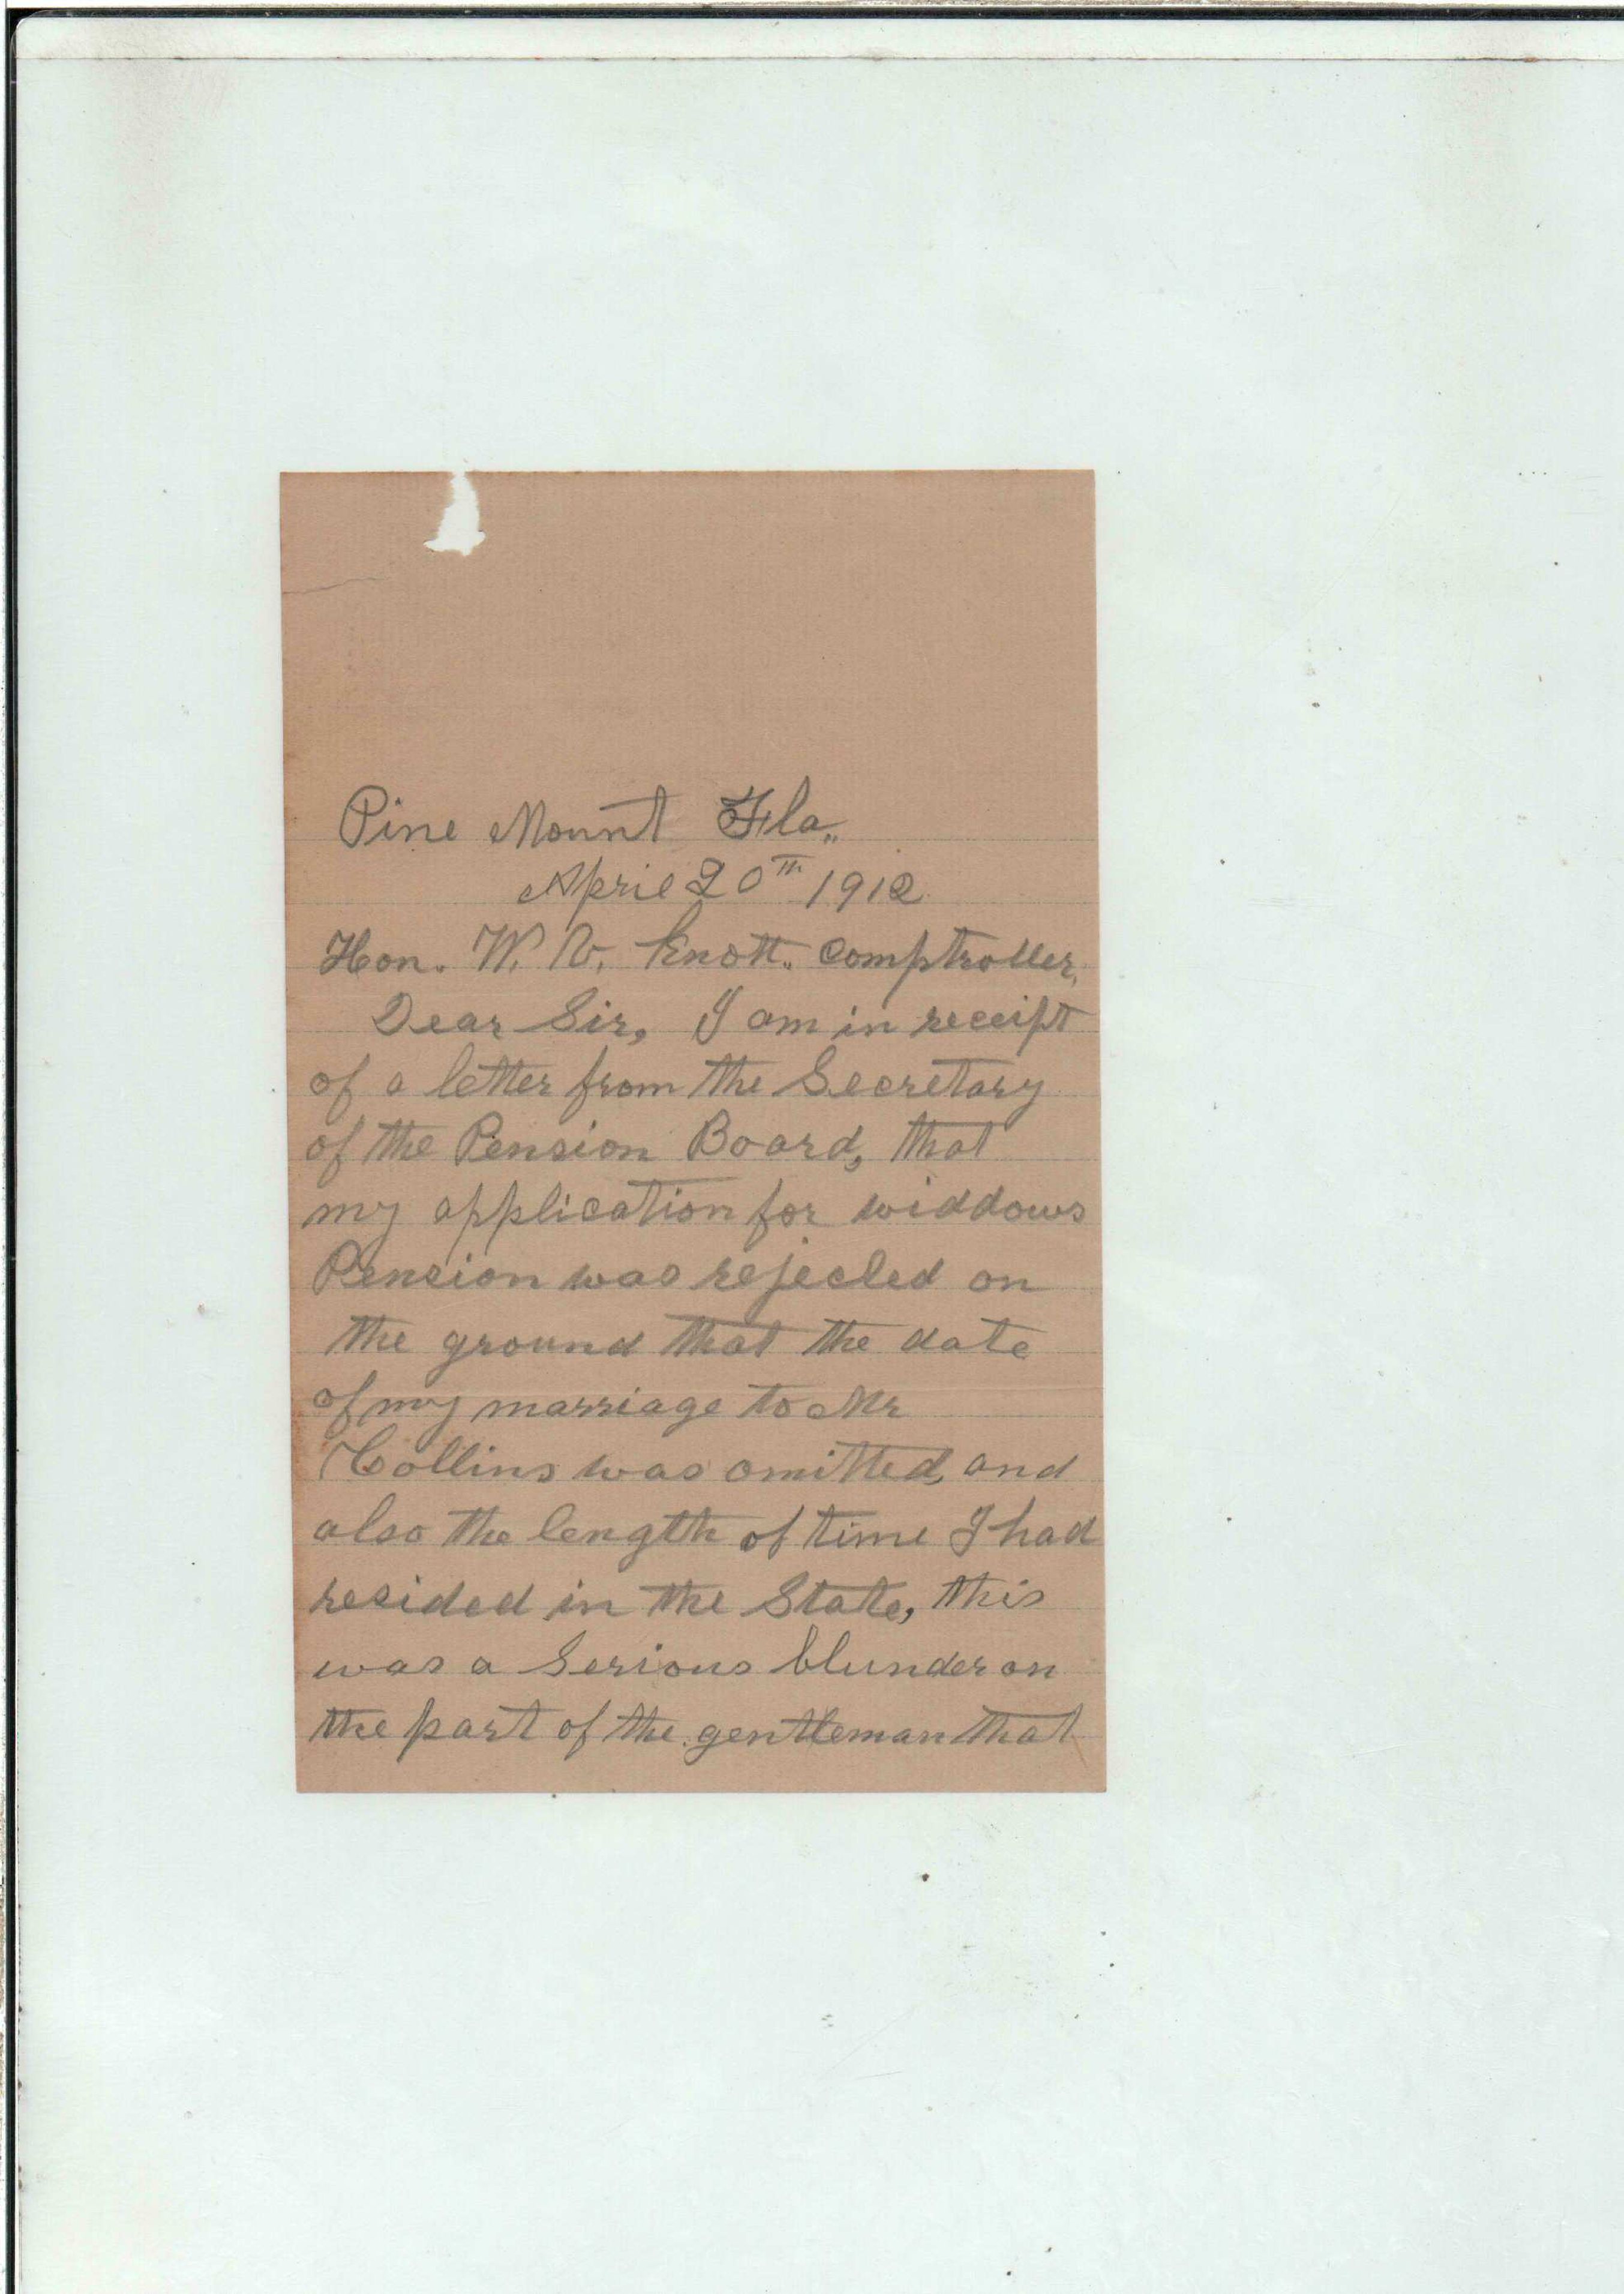 Pine Mount Fla.,
April 20th 1912
Hon. W. V. Knott. Comptroller,
Dear Sir, I am in receipt
of a letter from the Secretary
of the Pension Board, that
my application for widdows
Pension was rejected on
the ground that the date
of my marriage to Mr
Collins was omitted, and
also the length of time I had
resided in the State, this
was a Serious blunder on
the part of the gentleman that